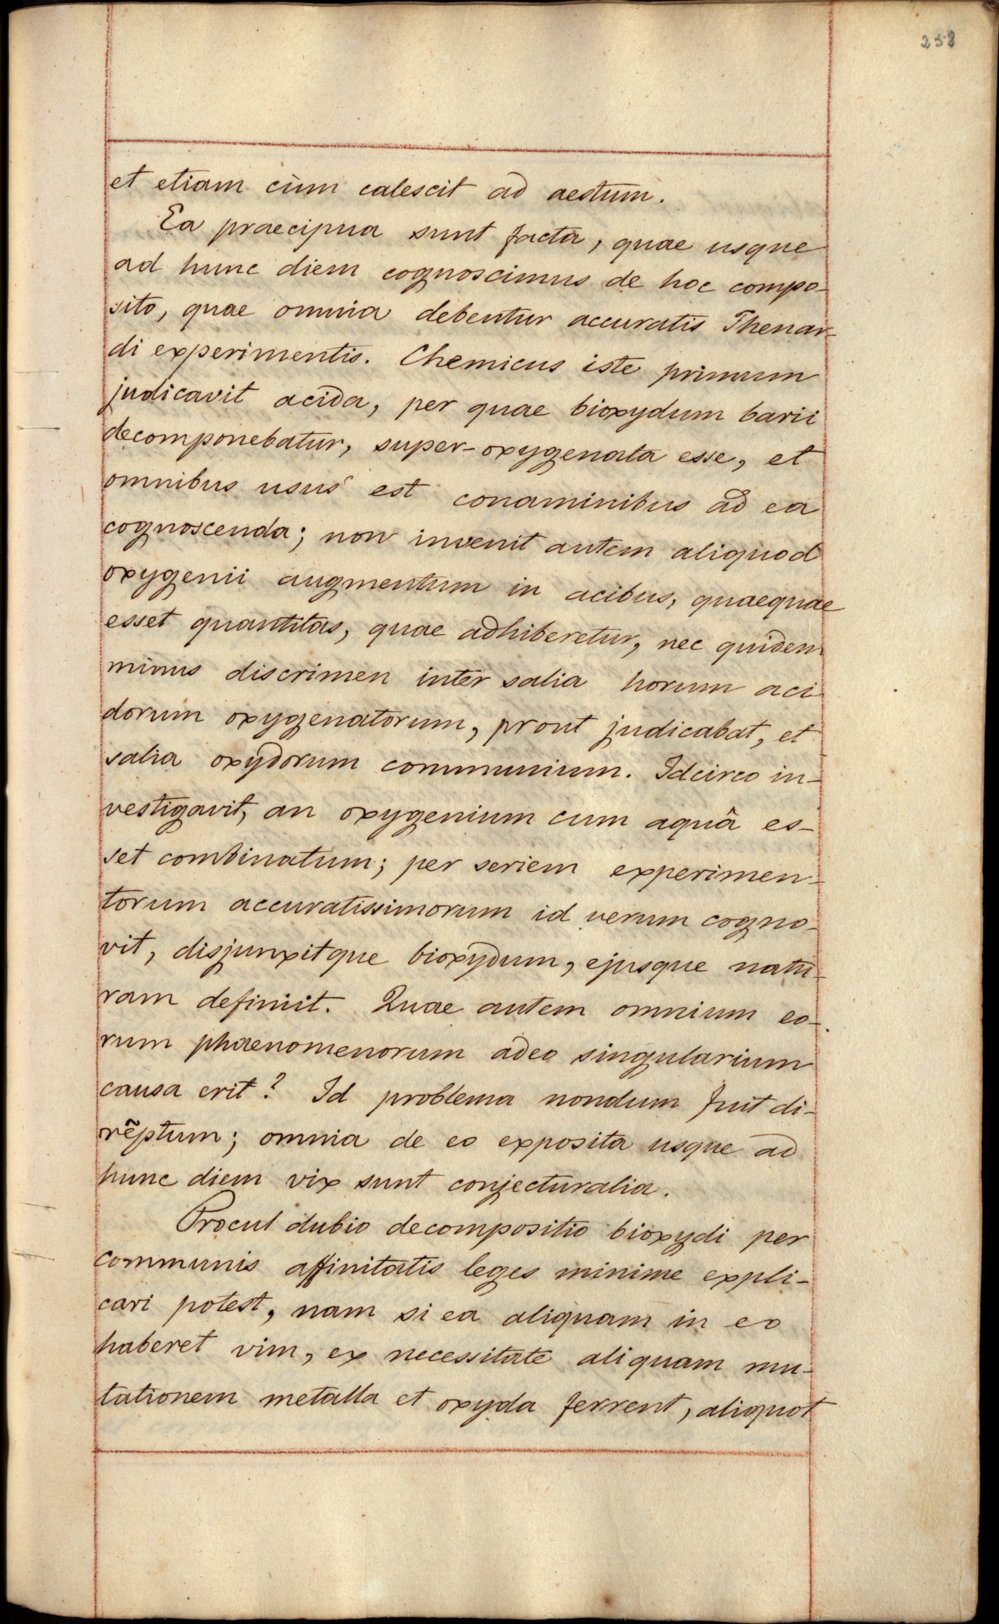 238
et etiam cùm calescit ad aestum.
Ea praecipua sunt facta, quae usque
ad hunc diem cognoscimus de hoc compo-
sito, quae omnia debentur accuratis Thenar-
di experimentis. Chemicus iste primum
judicavit acida, per quae bioxydum barii
decomponebatur, super-oxygenata esse, et
omnibus usus est conaminibus ad ea
cognoscenda; non invenit autem aliquod
oxygenii augmentum in acibus, quaequae
esset quantitas, quae adhiberetur, nec quidem
minus discrimen inter salia horum aci
dorum oxygenatorum, prout judicabat, et
salia oxydorum communium. Idcirco in-
vestigavit, an oxygenium cum aquâ es-
set combinatum; per seriem experimen-
torum accuratissimorum id verum cogno-
vit, disjunxitque bioxydum, ejusque natu-
ram definiit. Quae autem omnium eo-
rum phaenomenorum adeo singularium
causa erit? Id problema nondum fuit di-
rẽptum; omnia de eo exposita usque ad
hunc diem vix sunt conjecturalia.
Procul dubio decompositio bioxydi per
communis affinitatis leges minime expli-
cari potest, nam si ea aliquam in eo
haberet vim, ex necessitate aliquam mu-
tationem metalla et oxyda ferrent, aliquot